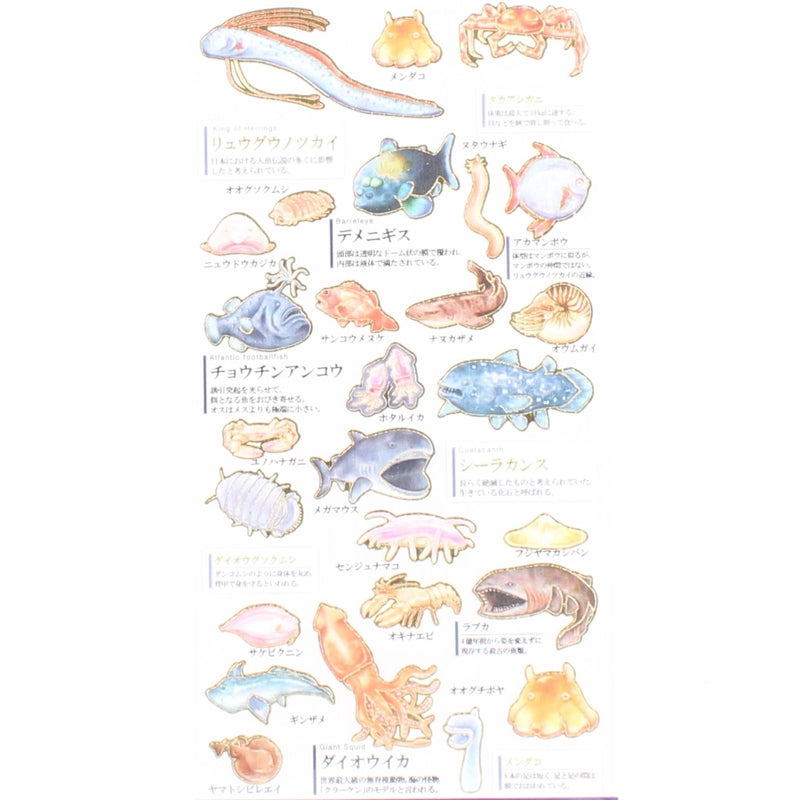 メンダコ
タカアシガニ
体重は最大で19kgに達する。
貝などを鋏で潰し割って食べる。
King of Herrings
リュウグウノツカイ
日本における人魚伝説の多くに影響
したと考えられている。
ヌタウナギ
オオグソクムシ
Barreleye
デメニギス
頭部は透明なドーム状の膜で覆われ、
内部は液体で満たされている。
アカマンボウ
体型はマンボウに似るが、
マンボウの仲間ではない。
リュウグウノツカイの近縁。
ニュウドウカジカ
サンコウメヌケ
ナヌカザメ
オウムガイ
Atlantic footballfish
チョウチンアンコウ
誘引突起を光らせて、
餌となる魚をおびき寄せる。
オスはメスよりも極端に小さい。
ホタルイカ
ユノハナガニ
Coelacanth
シーラカンス
長らく絶滅したものと考えられていた。
生きている化石と呼ばれる。
メガマウス
センジュナマコ
フジヤマカシパン
ダイオウグソクムシ
ダンゴムシのように身体を丸め、
背甲で身を守るといわれる。
オキナエビ
ラブカ
4億年前から姿を変えずに
現存する最古の魚類。
サケビクニン
ギンザメ
オオグチボヤ
Giant Squid
ダイオウイカ
世界最大級の無脊椎動物。海の怪物
「クラーケン」のモデルと言われる。
ヤマトシビレエイ
メンダコ
8本の足は短く、足と足の間は
膜でおおわれている。